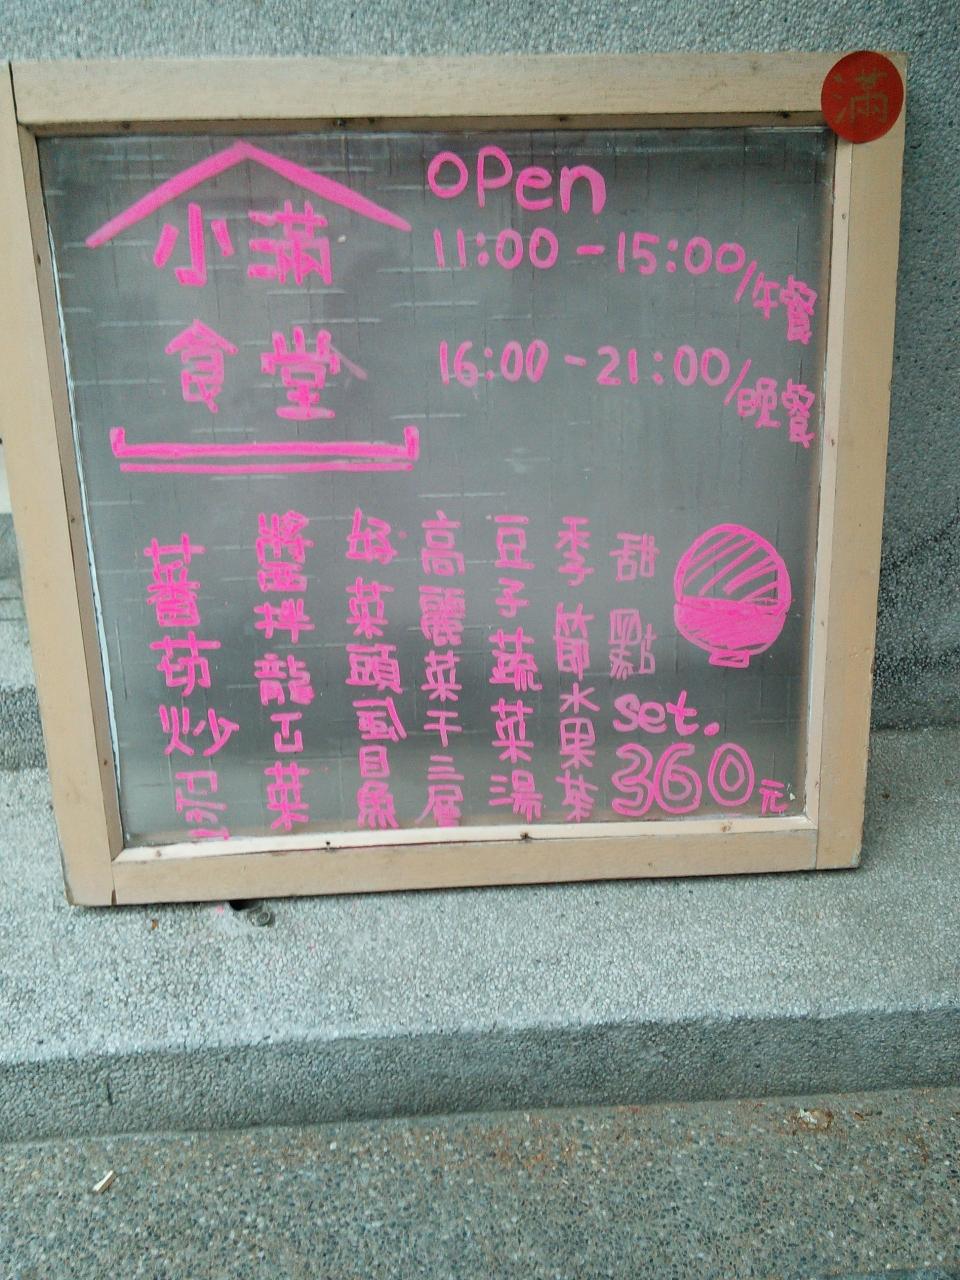 滿
小滿
食堂
open
11:00-15:00/午餐
16:00-21:00/晚餐
蕃茄炒
醬拌龍豆菜
菜頭虱目魚
高麗菜干三層
豆子蔬菜湯
季節水果茶
甜點
set.
360元